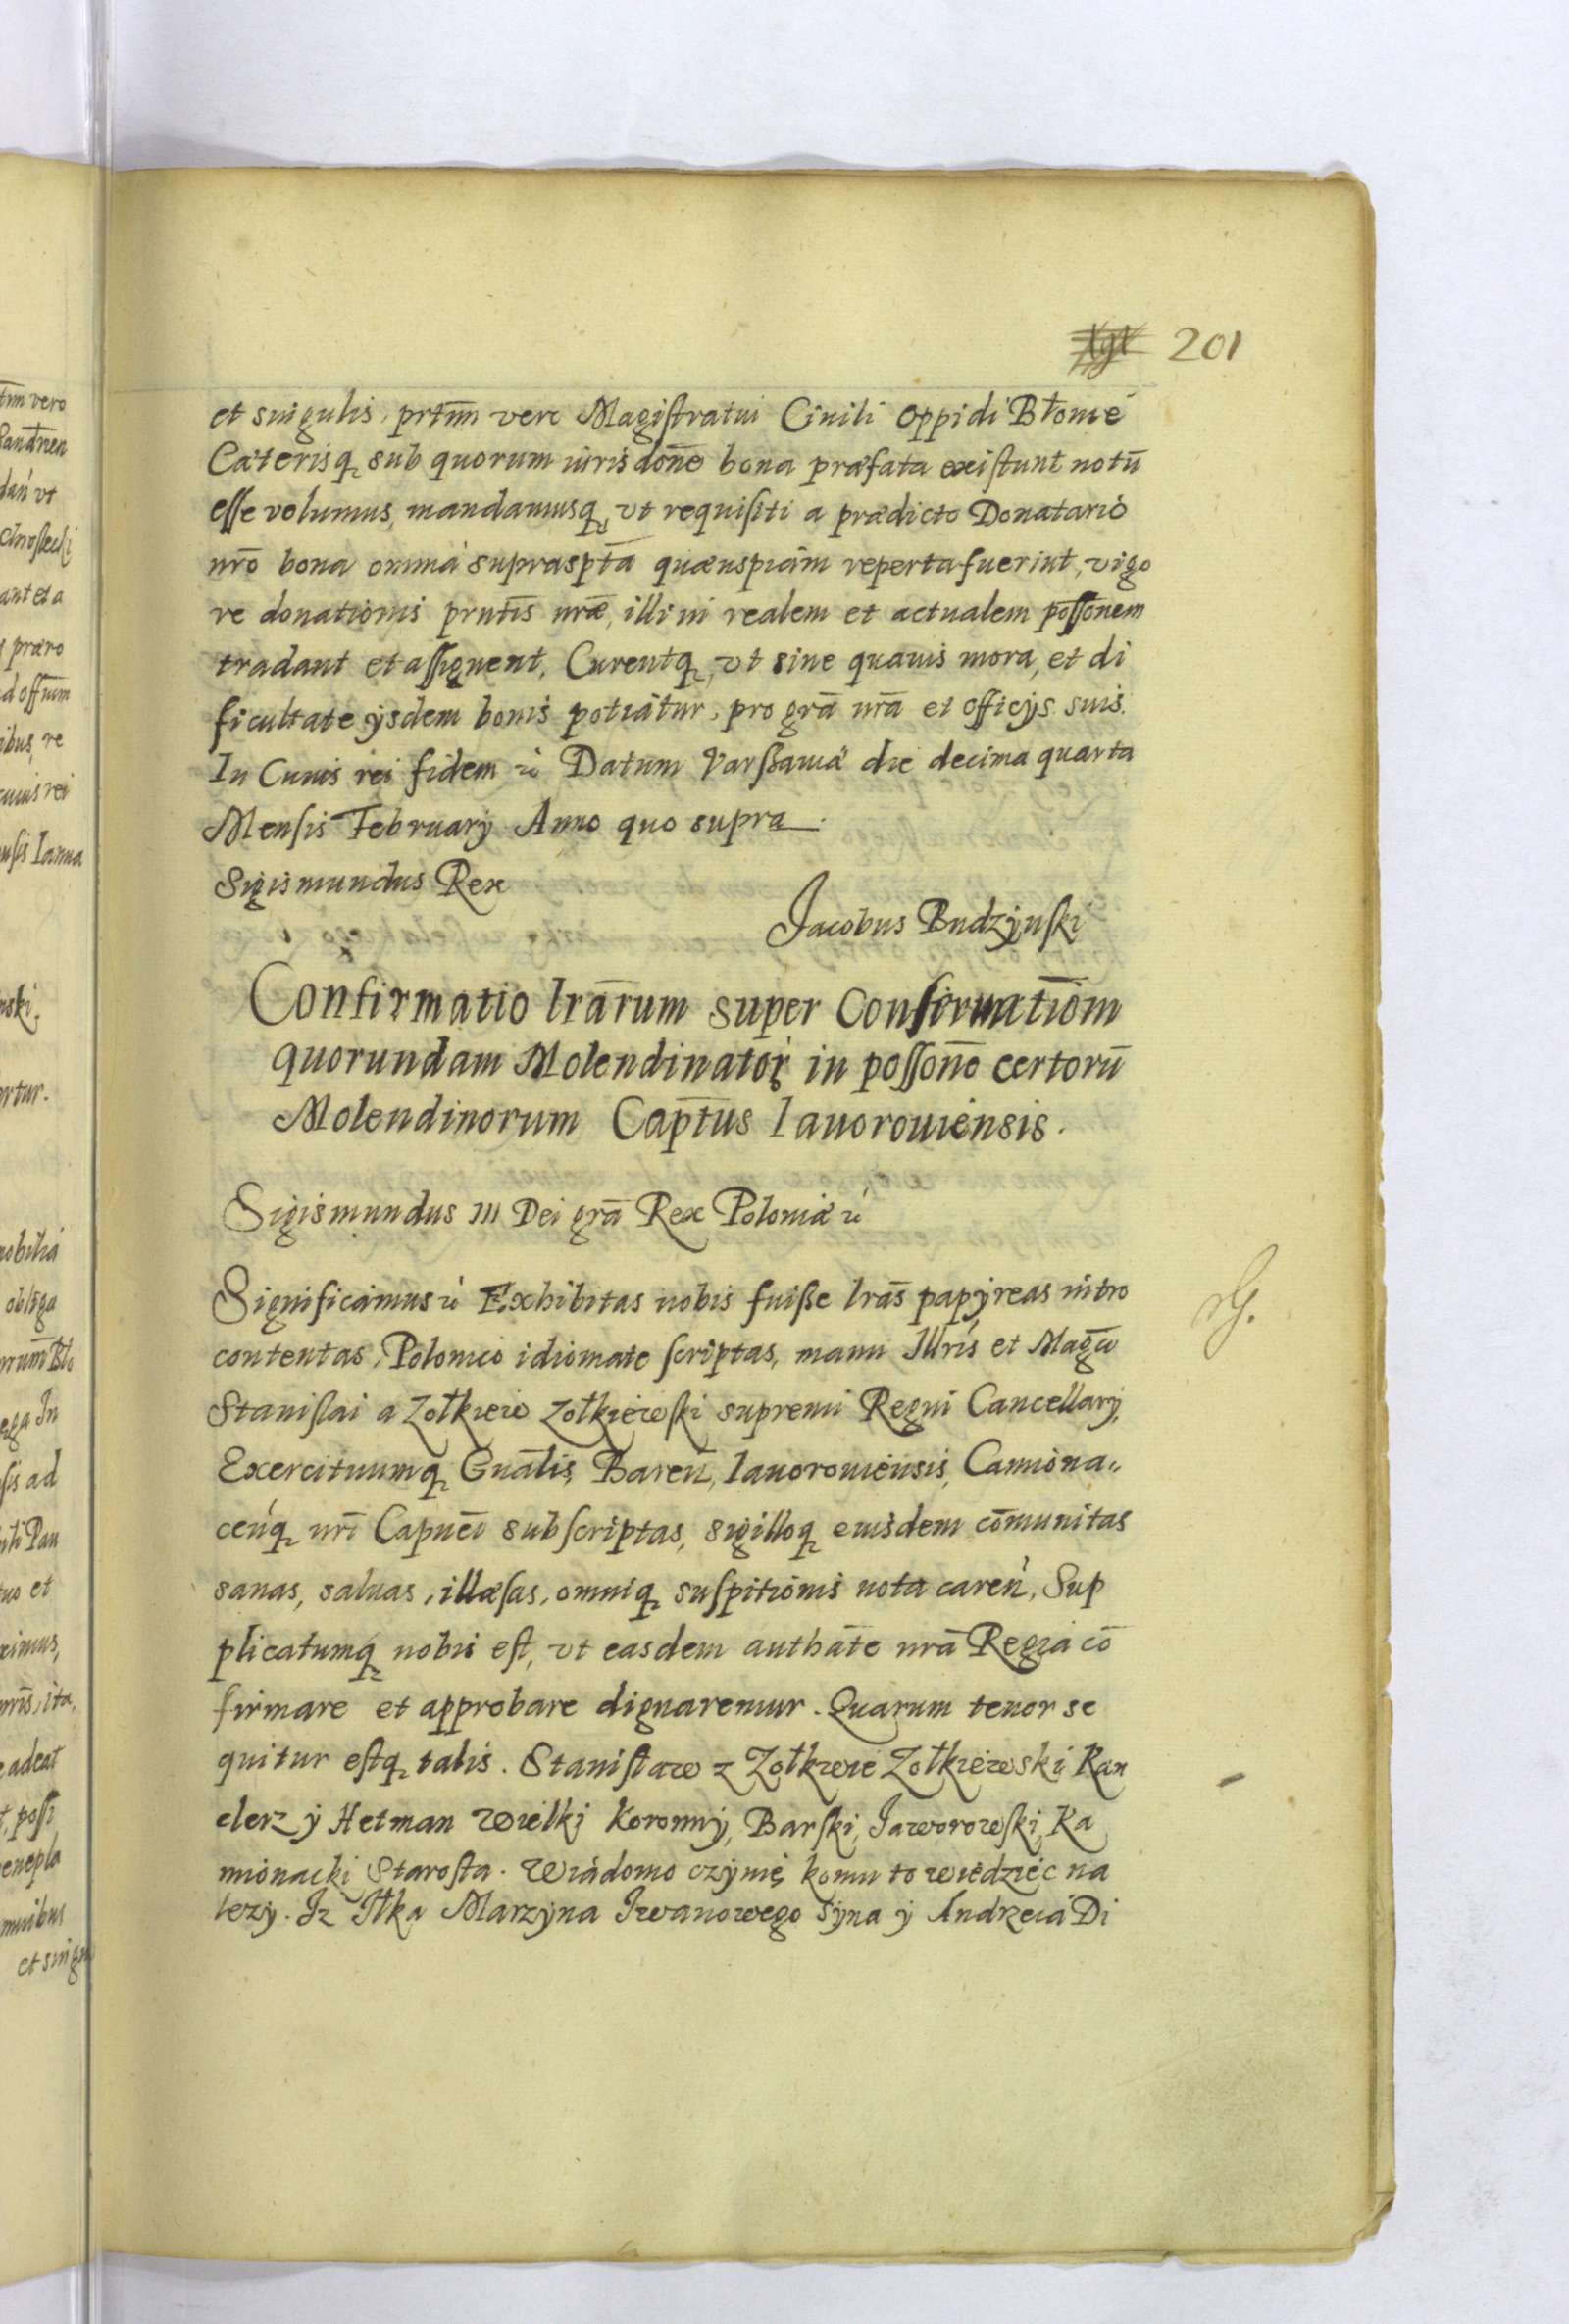 201
et singulis, prtm̄ vero Magistratui Ciuili Oppidi Błonie
Cæterisq sub quorum iurisdon̄e bona præfata existunt notū
esse volumus, mandamusq, vt requisiti a prædicto Donatario
nr̄o bona omnia suprasp̄ta quæuspiam reperta fuerint, vigo
re donationis prn̄tis nr̄æ, illi in realem et actualem posson̄em
tradant et assignent, Curentq, vt sine quauis mora, et di
ficultate ysdem bonis potiatur, pro grā nr̄a et officijs suis.
In Cuius rei fidem Datum Varssauiæ die decima quarta
Mensis February Anno quo supra.
Sigismundus Rex
Jacobus Budzynski
Confirmatio lrārum super Confirmatiōm
quorundam Molendinator in posson̄e certorū
Molendinorum Cap̄tus Iauorouiensis.
Sigismundus III Dei grā Rex Poloniæ
Significamus Exhibitas nobis fuisse lrās papyreas intro
contentas, Polonico idiomate scriptas, manu Illris et Magci
Stanislai a Zołkiew Zołkiewski supremi Regni Cancellarij,
Exercituumq Gnālis, Baren̄, Iauorouiensis, Camiona„
cen̄q nr̄i Capnēi subscriptas, sigilloq eiusdem cōmunitas
sanas, saluas, illæsas, omniq suspitionis nota caren̄, Sup
plicatumq nobis est, vt easdem authāte nr̄a Regia cō
firmare et approbare dignaremur. Quarum tenor se
quitur estq talis. Stanisław z Zołkwie Zołkiewski Kan
clerz y Hetman Wielki Koronny, Barski, Jaworowski, Ka
mionacki Starosta. Wiadomo czynię komu to wiedziec na
lezy. Jz Iłka Marzyna Iwanowego Syna y Andrzeia Di